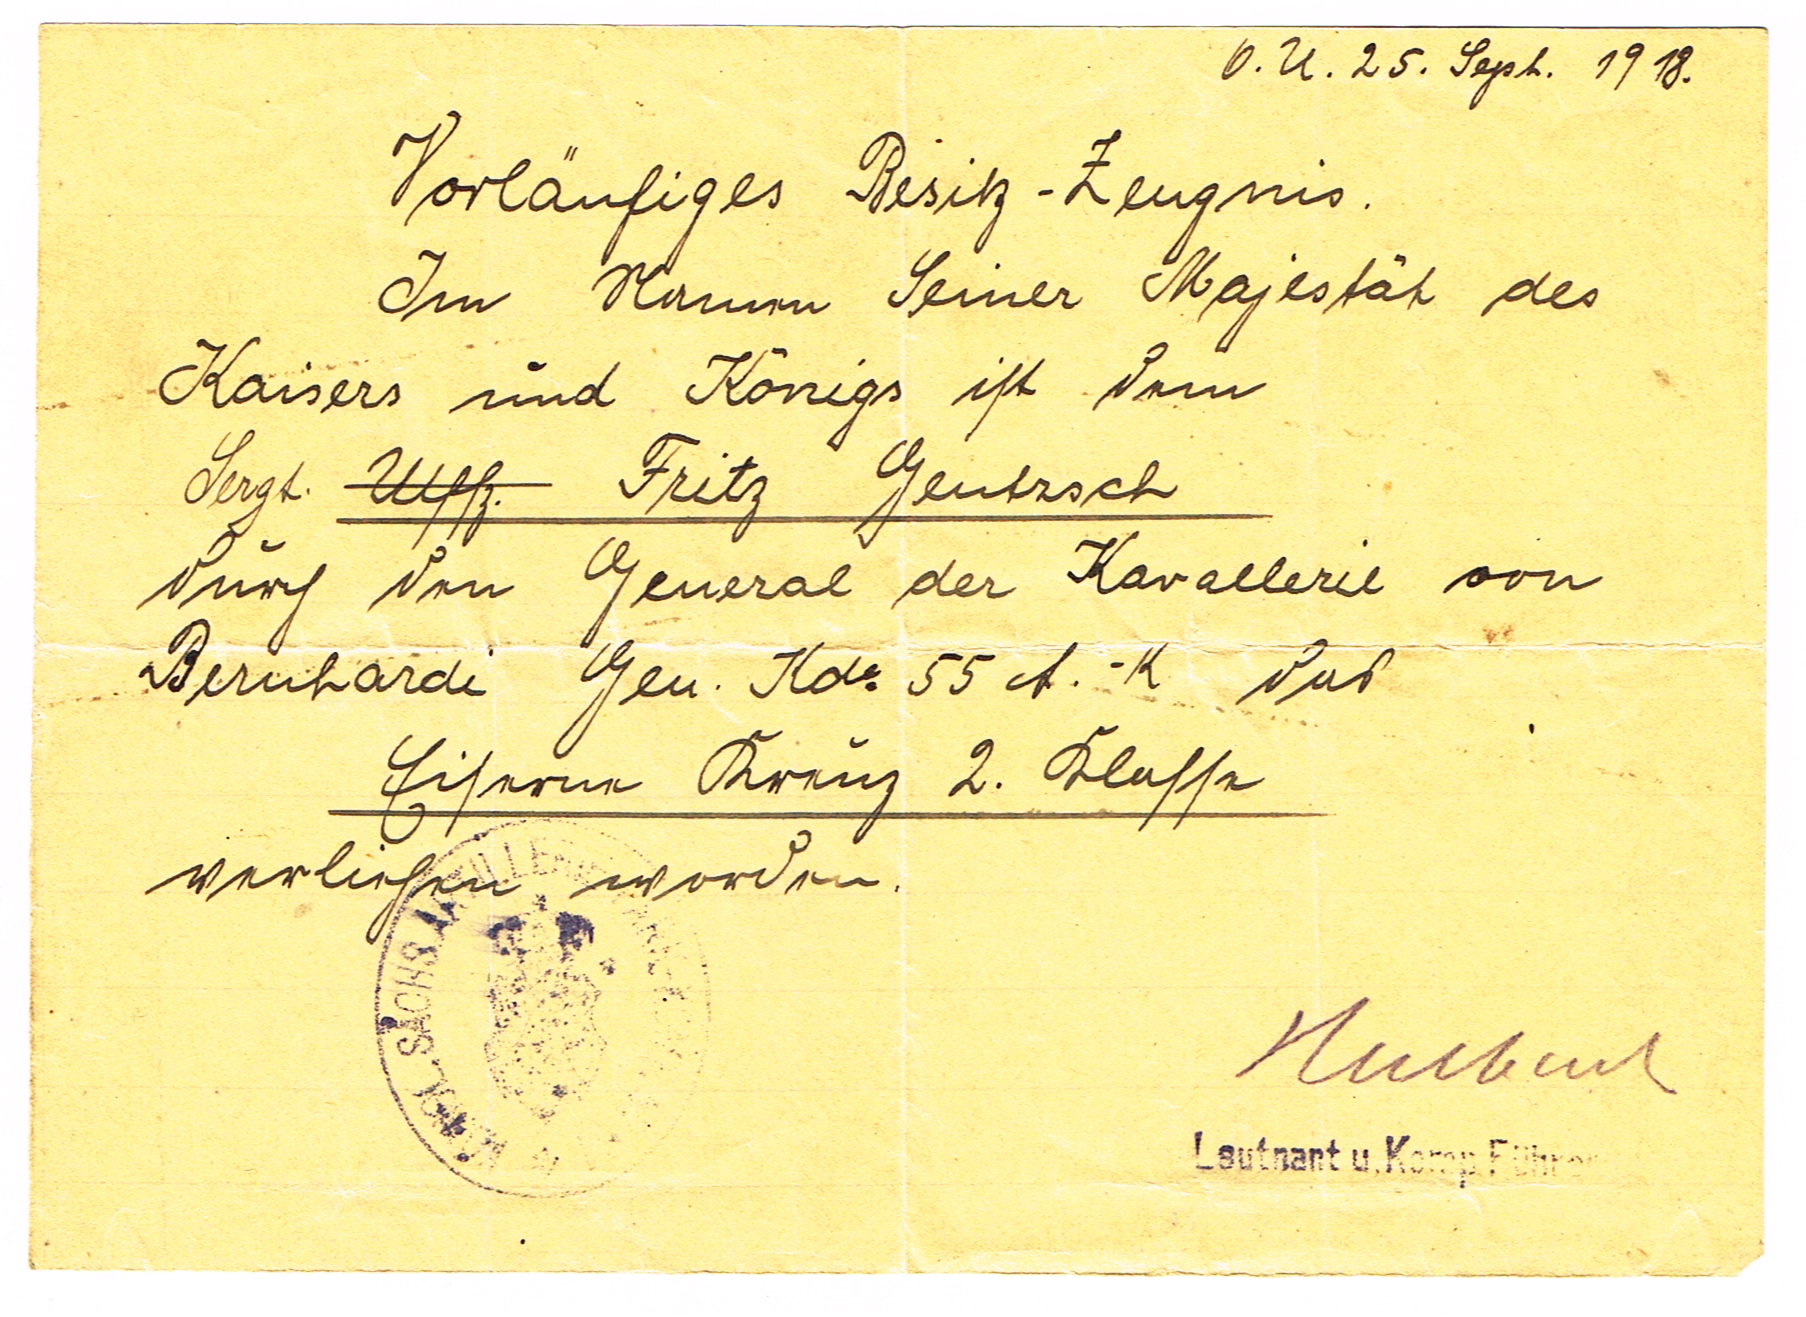 O. U. 25. Sept. 1918.
Vorläufiges Besitz-Zeugnis.
Im Namen Seiner Majestät des
Kaisers und Königs ist dem
Sergt. Uffz. Fritz Gentzsch
durch den General der Kavallerie von
Bernhardi Gen. Kdo. 55 A.-K das
Eiserne Kreuz 2. Klasse
verliehen worden.
KÖNIGL. SÄCHS.
Leutnant u. Komp. Führer